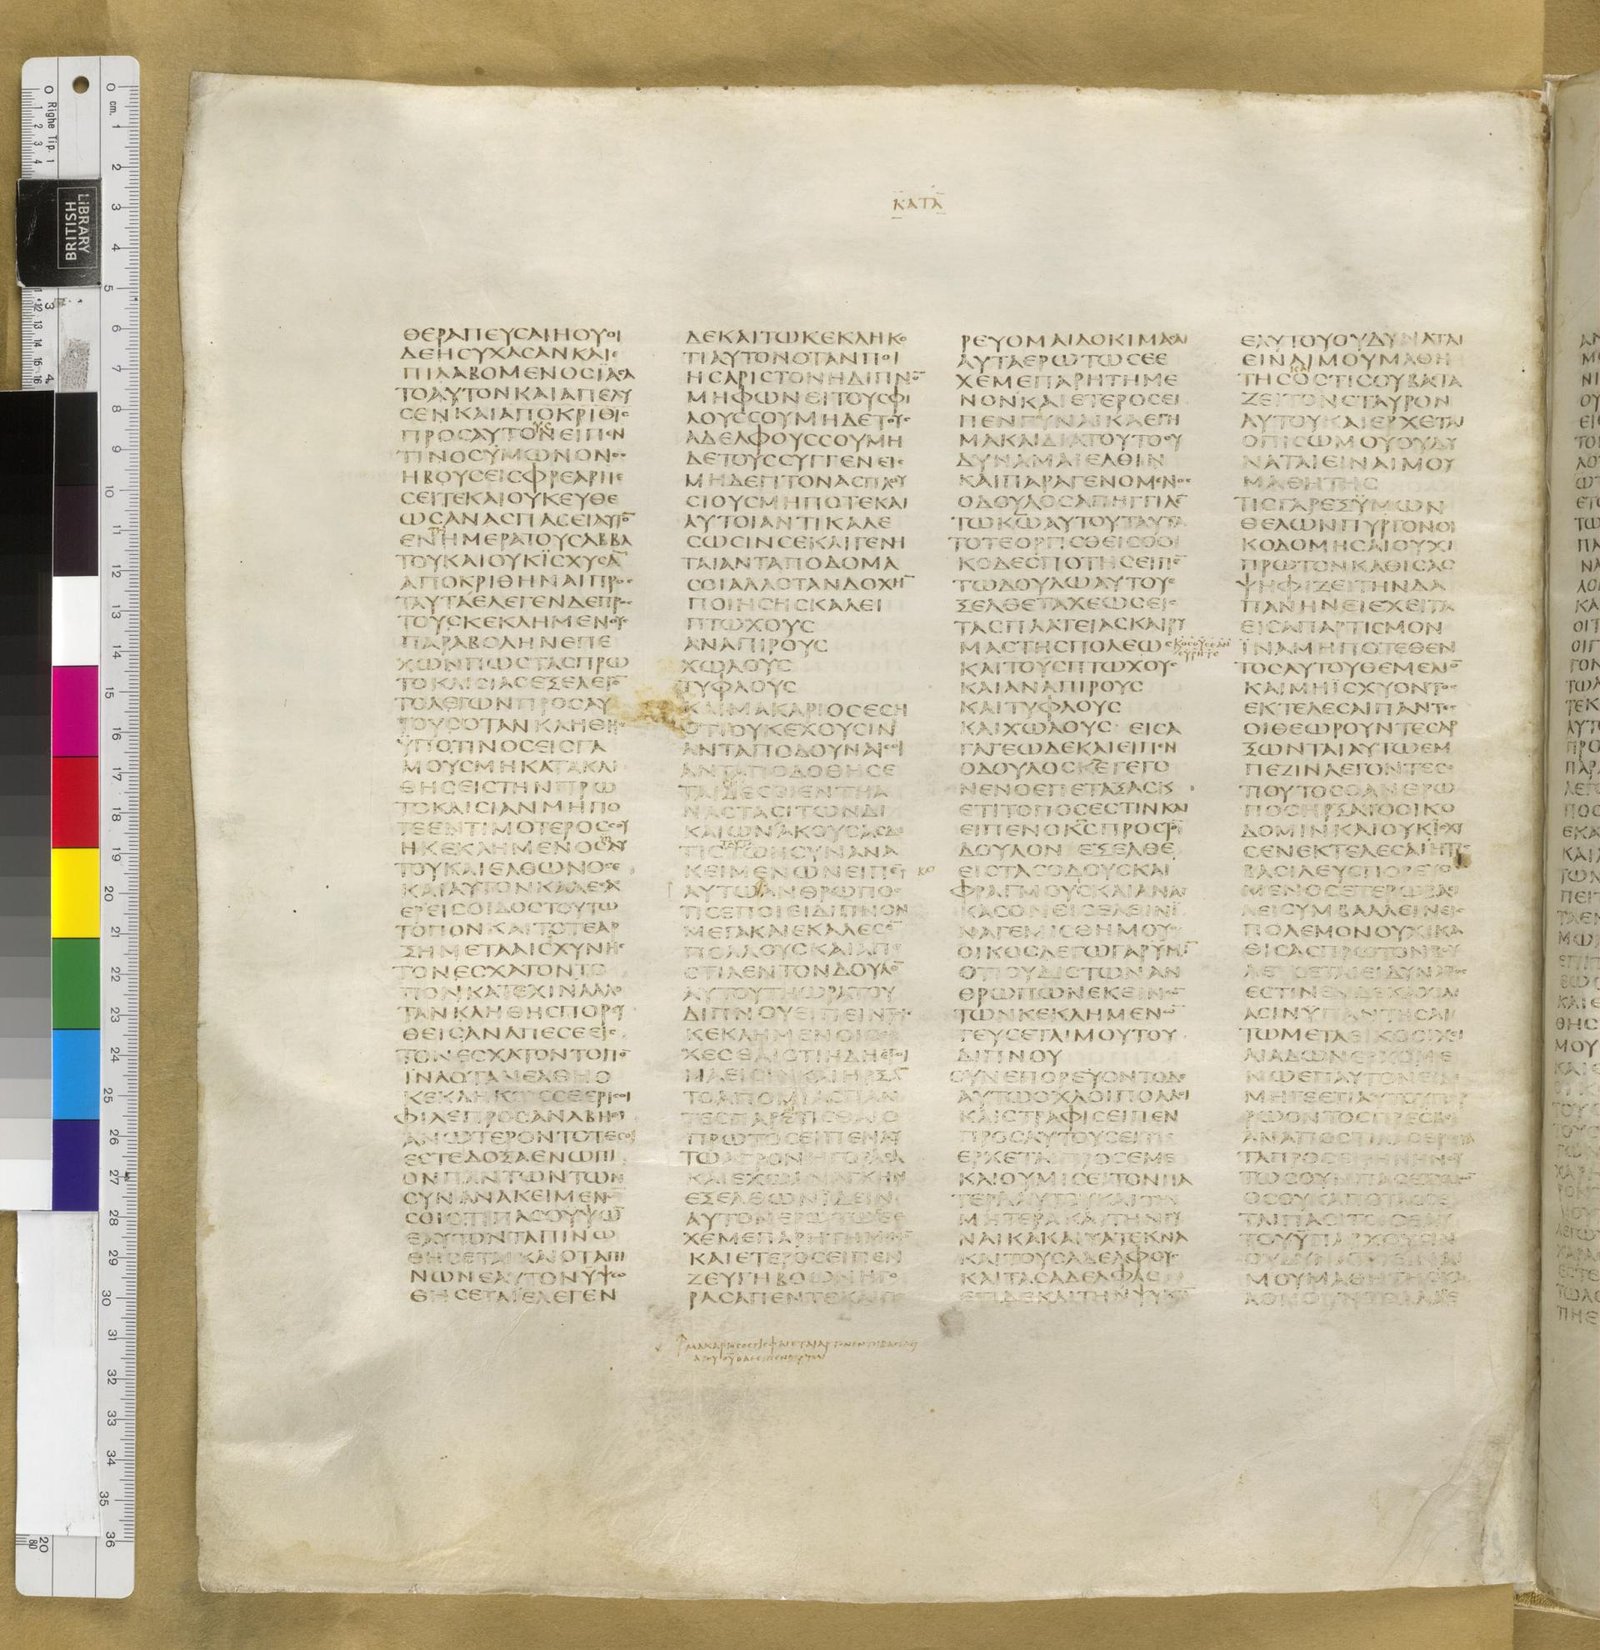 ΚΑΤΑ
ΘΕΡΑΠΕΥϹΑΙΗΟΥΟΙ
ΔΕΗϹΥΧΑϹΑΝΚΑΙΕ
ΠΙΛΑΒΟΜΕΝΟϹΙΑϹΑ
ΤΟΑΥΤΟΝΚΑΙΑΠΕΛΥ
ϹΕΝΚΑΙΑΠΟΚΡΙΘΙϹ
ΠΡΟϹΑΥΤΟΝΕΙΠΕΝ
ΤΙΝΟϹΥΜΩΝΟΝΟϹ
ΗΒΟΥϹΕΙϹΦΡΕΑΡΠΕ
ϹΕΙΤΕΚΑΙΟΥΚΕΥΘΕ
ΩϹΑΝΑϹΠΑϹΕΙΑΥΤΟ̅
ΕΝΗΜΕΡΑΤΟΥϹΑΒΒΑ
ΤΟΥΚΑΙΟΥΚΪϹΧΥϹΑ̅
ΑΠΟΚΡΙΘΗΝΑΙΠΡΟϹ
ΤΑΥΤΑΕΛΕΓΕΝΔΕΠΡΟϹ
ΤΟΥϹΚΕΚΛΗΜΕΝΟΥϹ
ΠΑΡΑΒΟΛΗΝΕΠΕ
ΧΩΝΠΩϹΤΑϹΠΡΩ
ΤΟΚΛΙϹΙΑϹΕΞΕΛΕΓΟ̅
ΤΟΛΕΓΩΝΠΡΟϹΑΥ
ΤΟΥϹΟΤΑΝΚΛΗΘΗϹ
ΫΠΟΤΙΝΟϹΕΙϹΓΑ
ΜΟΥϹΜΗΚΑΤΑΚΛΙ
ΘΗϹΕΙϹΤΗΝΠΡΩ
ΤΟΚΛΙϹΙΑΝΜΗΠΟ
ΤΕΕΝΤΙΜΟΤΕΡΟϹϹΟΥ
ΗΚΕΚΛΗΜΕΝΟϹΑΥ
ΤΟΥΚΑΙΕΛΘΩΝΟϹΕ
ΚΑΙΑΥΤΟΝΚΑΛΕϹΑϹ
ΕΡΕΙϹΟΙΔΟϹΤΟΥΤΩ
ΤΟΠΟΝΚΑΙΤΟΤΕΑΡ
ΞΗΜΕΤΑΑΙϹΧΥΝΗϹ
ΤΟΝΕϹΧΑΤΟΝΤΟ
ΠΟΝΚΑΤΕΧΙΝΑΛΛΟ
ΤΑΝΚΛΗΘΗϹΠΟΡΕΥ
ΘΕΙϹΑΝΑΠΕϹΕΕΙϹ
ΤΟΝΕϹΧΑΤΟΝΤΟΠΟ̅
ΪΝΑΟΤΑΝΕΛΘΗΟ
ΚΕΚΛΗΚΩϹϹΕΕΡΙϹΟΙ
ΦΙΛΕΠΡΟϹΑΝΑΒΗΘΙ
ΑΝΩΤΕΡΟΝΤΟΤΕϹΟΙ
ΕϹΤΕΔΟΞΑΕΝΩΠΙ
ΟΝΠΑΝΤΩΝΤΩΝ
ϹΥΝΑΝΑΚΕΙΜΕΝΩ̅
ϹΟΙΟΤΙΠΑϹΟΥΨΩ̅
ΕΑΥΤΟΝΤΑΠΙΝΩ
ΘΗϹΕΤΑΙΚΑΙΟΤΑΠΙ
ΝΩΝΕΑΥΤΟΝΥΨΩ
ΘΗϹΕΤΑΙΕΛΕΓΕΝ
ΔΕΚΑΙΤΩΚΕΚΛΗΚΟ
ΤΙΑΥΤΟΝΟΤΑΝΠΟΙ
ΗϹΑΡΙϹΤΟΝΗΔΙΠΝΟ̅
ΜΗΦΩΝΕΙΤΟΥϹΦΙ
ΛΟΥϹϹΟΥΜΗΔΕΤΟΥϹ
ΑΔΕΛΦΟΥϹϹΟΥΜΗ
ΔΕΤΟΥϹϹΥΓΓΕΝΕΙϹ
ΜΗΔΕΓΙΤΟΝΑϹΠΛΟΥ
ϹΙΟΥϹΜΗΠΟΤΕΚΑΙ
ΑΥΤΟΙΑΝΤΙΚΑΛΕ
ϹΩϹΙΝϹΕΚΑΙΓΕΝΗ
ΤΑΙΑΝΤΑΠΟΔΟΜΑ
ϹΟΙΑΛΛΟΤΑΝΔΟΧΗ̅
ΠΟΙΗϹΗϹΚΑΛΕΙ
ΠΤΩΧΟΥϹ
ΑΝΑΠΙΡΟΥϹ
ΧΩΛΟΥϹ
ΤΥΦΛΟΥϹ
ΚΑΙΜΑΚΑΡΙΟϹΕϹΗ
ΟΤΙΟΥΚΕΧΟΥϹΙΝ
ΑΝΤΑΠΟΔΟΥΝΑΙϹΟΙ
ΑΝΤΑΠΟΔΟΘΗϹΕ
ΤΑΙΔΕϹΟΙΕΝΤΗΑ
ΝΑϹΤΑϹΙΤΩΝΔΙ
ΚΑΙΩΝΑΚΟΥϹΑϹΔΕ
ΤΙϹΤΩΝϹΥΝΑΝΑ
ΚΕΙΜΕΝΩΝΕΙΠΕ̅
ΑΥΤΩΑΝΘΡΩΠΟϹ
ΤΙϹΕΠΟΙΕΙΔΙΠΝΟΝ
ΜΕΓΑΚΑΙΕΚΑΛΕϹΕ̅
ΠΟΛΛΟΥϹΚΑΙΑΠΕ
ϹΤΙΛΕΝΤΟΝΔΟΥΛΟ̅
ΑΥΤΟΥΤΗΩΡΑΤΟΥ
ΔΙΠΝΟΥΕΙΠΕΙΝΤΟΙϹ
ΚΕΚΛΗΜΕΝΟΙϹΕΡ
ΧΕϹΘΑΙΟΤΙΗΔΗΕΤΟΙ
ΜΑΕΙϹΙΝΚΑΙΗΡΞΑ̅
ΤΟΑΠΟΜΙΑϹΠΑΝ
ΤΕϹΠΑΡΕΤΙϹΘΑΙΟ
ΠΡΩΤΟϹΕΙΠΕΝΑΥ
ΤΩΑΓΡΟΝΗΓΟΡΑϹΑ
ΚΑΙΕΧΩΑΝΑΓΚΗΝ
ΕΞΕΛΘΩΝΪΔΕΙΝ
ΑΥΤΟΝΕΡΩΤΩϹΕΕ
ΧΕΜΕΠΑΡΗΤΗΜΕΝΟ̅
ΚΑΙΕΤΕΡΟϹΕΙΠΕΝ
ΖΕΥΓΗΒΟΩΝΗΓΟ
ΡΑϹΑΠΕΝΤΕΚΑΙΠΟ
ΡΕΥΟΜΑΙΔΟΚΙΜΑϹΑΙ
ΑΥΤΑΕΡΩΤΩϹΕΕ
ΧΕΜΕΠΑΡΗΤΗΜΕ
ΝΟΝΚΑΙΕΤΕΡΟϹΕΙ
ΠΕΝΓΥΝΑΙΚΑΕΓΗ
ΜΑΚΑΙΔΙΑΤΟΥΤΟΟΥ
ΔΥΝΑΜΑΙΕΛΘΙΝ
ΚΑΙΠΑΡΑΓΕΝΟΜΕΝΟϹ
ΟΔΟΥΛΟϹΑΠΗΓΓΙΛΕ̅
ΤΩΚΩΑΥΤΟΥΤΑΥΤΑ
ΤΟΤΕΟΡΓΙϹΘΕΙϹΟΟΙ
ΚΟΔΕϹΠΟΤΗϹΕΙΠΕ̅
ΤΩΔΟΥΛΩΑΥΤΟΥΕ
ΞΕΛΘΕΤΑΧΕΩϹΕΙϹ
ΤΑϹΠΛΑΤΕΙΑϹΚΑΙΡΥ
ΜΑϹΤΗϹΠΟΛΕΩϹ
ΚΑΙΤΟΥϹΠΤΩΧΟΥϹ
ΚΑΙΑΝΑΠΙΡΟΥϹ
ΚΑΙΤΥΦΛΟΥϹ
ΚΑΙΧΩΛΟΥϹΕΙϹΑ
ΓΑΓΕΩΔΕΚΑΙΕΙΠΕΝ
ΟΔΟΥΛΟϹΚΕΓΕΓΟ
ΝΕΝΟΕΠΕΤΑΞΑϹΚΑΙ
ΕΤΙΤΟΠΟϹΕϹΤΙΝΚΑΙ
ΕΙΠΕΝΟΚϹΠΡΟϹΤΟ̅
ΔΟΥΛΟΝΕΞΕΛΘΕ
ΕΙϹΤΑϹΟΔΟΥϹΚΑΙ
ΦΡΑΓΜΟΥϹΚΑΙΑΝΑΓ
ΚΑϹΟΝΕΙϹΕΛΘΕΙΝΙ
ΝΑΓΕΜΙϹΘΗΜΟΥΟ
ΟΙΚΟϹΛΕΓΩΓΑΡΥΜΙ̅
ΟΤΙΟΥΔΙϹΤΩΝΑΝ
ΘΡΩΠΩΝΕΚΕΙΝΩ̅
ΤΩΝΚΕΚΛΗΜΕΝΩ̅
ΓΕΥϹΕΤΑΙΜΟΥΤΟΥ
ΔΙΠΝΟΥ
ϹΥΝΕΠΟΡΕΥΟΝΤΟΔΕ
ΑΥΤΩΟΧΛΟΙΠΟΛΛΟΙ
ΚΑΙϹΤΡΑΦΙϹΕΙΠΕΝ
ΠΡΟϹΑΥΤΟΥϹΕΙΤΙϹ
ΕΡΧΕΤΑΙΠΡΟϹΕΜΕ
ΚΑΙΟΥΜΙϹΕΙΤΟΝΠΑ
ΤΕΡΑΑΥΤΟΥΚΑΙΤΗΝ
ΜΗΤΕΡΑΚΑΙΤΗΝΓΥ
ΝΑΙΚΑΚΑΙΤΑΤΕΚΝΑ
ΚΑΙΤΟΥϹΑΔΕΛΦΟΥϹ
ΚΑΙΤΑϹΑΔΕΛΦΑϹ
ΕΤΙΔΕΚΑΙΤΗΝΨΥΧΗ̅
ΕΑΥΤΟΥΟΥΔΥΝΑΤΑΙ
ΕΙΝΑΙΜΟΥΜΑΘΗ
ΤΗϹΟϹΤΙϹΟΥΒΑϹΤΑ
ΖΕΙΤΟΝϹΤΑΥΡΟΝ
ΑΥΤΟΥΚΑΙΕΡΧΕΤΑΙ
ΟΠΙϹΩΜΟΥΟΥΔΥ
ΝΑΤΑΙΕΙΝΑΙΜΟΥ
ΜΑΘΗΤΗϹ
ΤΙϹΓΑΡΕΞΫΜΩΝ
ΘΕΛΩΝΠΥΡΓΟΝΟΙ
ΚΟΔΟΜΗϹΑΙΟΥΧΙ
ΠΡΩΤΟΝΚΑΘΙϹΑϹ
ΨΗΦΙΖΕΙΤΗΝΔΑ
ΠΑΝΗΝΕΙΕΧΕΙΤΑ
ΕΙϹΑΠΑΡΤΙϹΜΟΝ
ΪΝΑΜΗΠΟΤΕΘΕΝ
ΤΟϹΑΥΤΟΥΘΕΜΕΛΙΟ̅
ΚΑΙΜΗΪϹΧΥΟΝΤΟϹ
ΕΚΤΕΛΕϹΑΙΠΑΝΤΕϹ
ΟΙΘΕΩΡΟΥΝΤΕϹΑΡ
ΞΩΝΤΑΙΑΥΤΩΕΜ
ΠΕΖΙΝΛΕΓΟΝΤΕϹΟ
ΤΙΟΥΤΟϹΟΑΝΘΡΩ
ΠΟϹΗΡΞΑΤΟΟΙΚΟ
ΔΟΜΙΝΚΑΙΟΥΚΪϹΧΥ
ϹΕΝΕΚΤΕΛΕϹΑΙΗΤΙϹ
ΒΑϹΙΛΕΥϹΠΟΡΕΥΟ
ΜΕΝΟϹΕΤΕΡΩΒΑϹΙ
ΛΕΙϹΥΜΒΑΛΛΕΙΝΕΙϹ
ΠΟΛΕΜΟΝΟΥΧΙΚΑ
ΘΙϹΑϹΠΡΩΤΟΝΒΟΥ
ΛΕΥϹΕΤΑΙΕΙΔΥΝΑΤΟϹ
ΕϹΤΙΝΕΝΔΕΚΑΧΙΛΙ
ΑϹΙΝΥΠΑΝΤΗϹΑΙ
ΤΩΜΕΤΑΕΙΚΟϹΙΧΙ
ΛΙΑΔΩΝΕΡΧΟΜΕ
ΝΩΕΠΑΥΤΟΝΕΙΔΕ
ΜΗΓΕΕΤΙΑΥΤΟΥΠΟΡ
ΡΩΟΝΤΟϹΠΡΕϹΒΙ
ΑΝΑΠΟϹΤΙΛΑϹΕΡΩΤΑ
ΤΑΠΡΟϹΕΙΡΗΝΗΝΟΥ
ΤΩϹΟΥΝΠΑϹΕΞΥΜΩ̅
ΟϹΟΥΚΑΠΟΤΑϹϹΕ
ΤΑΙΠΑϹΙΤΟΙϹΕΑΥ
ΤΟΥΥΠΑΡΧΟΥϹΙΝ
ΟΥΔΥΝΑΤΑΙΕΙΝΑΙ
ΜΟΥΜΑΘΗΤΗϹΚΑ
ΛΟΝΟΥΝΤΟΑΛΑϹΕ
BRITISH
LIBRARY
Righe Tip. 1
cm.